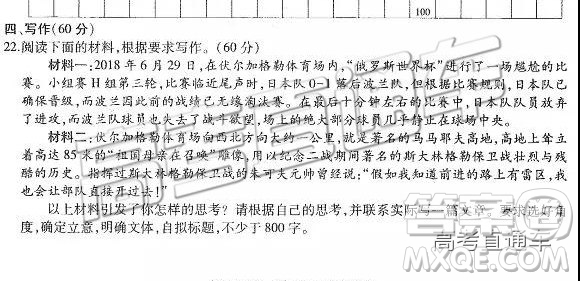 100
四、写作(60 分)
22.阅读下面的材料,根据要求写作。(60 分)
材料一:2018 年 6 月 29 日,在伏尔加格勒体育场内,“俄罗斯世界杯”进行了一场尴尬的比
赛。小组赛 H 组第三轮,比赛临近尾声时,日本队 0-1 落后波兰队,但根据比赛规则,日本队已
确保晋级,而波兰因此前的战绩已无缘淘汰赛。在最后十分钟左右的比赛中,日本队队员放弃
了进攻,而波兰队球员也失去了战斗欲望,场上的绝大部分球员几乎静止在球场中央。
材料二:伏尔加格勒体育场向西北方向大约一公里,就是著名的马马耶夫高地,高地上耸立
着高达 85 米的“祖国母亲在召唤”雕像,用以纪念二战期间著名的斯大林格勒保卫战壮烈与残
酷的历史。指挥过斯大林格勒保卫战的朱可夫元帅曾经说:“假如我知道前进的路上有雷区,我
也会让部队直接开过去!”
以上材料引发了你怎样的思考?请根据自己的思考,并联系实际写一篇文章。要求选好角
度,确定立意,明确文体,自拟标题,不少于 800 字。
高考直通车